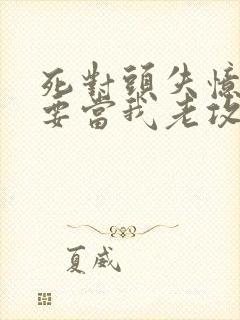 死對頭失憶
要當我老攻
夏威